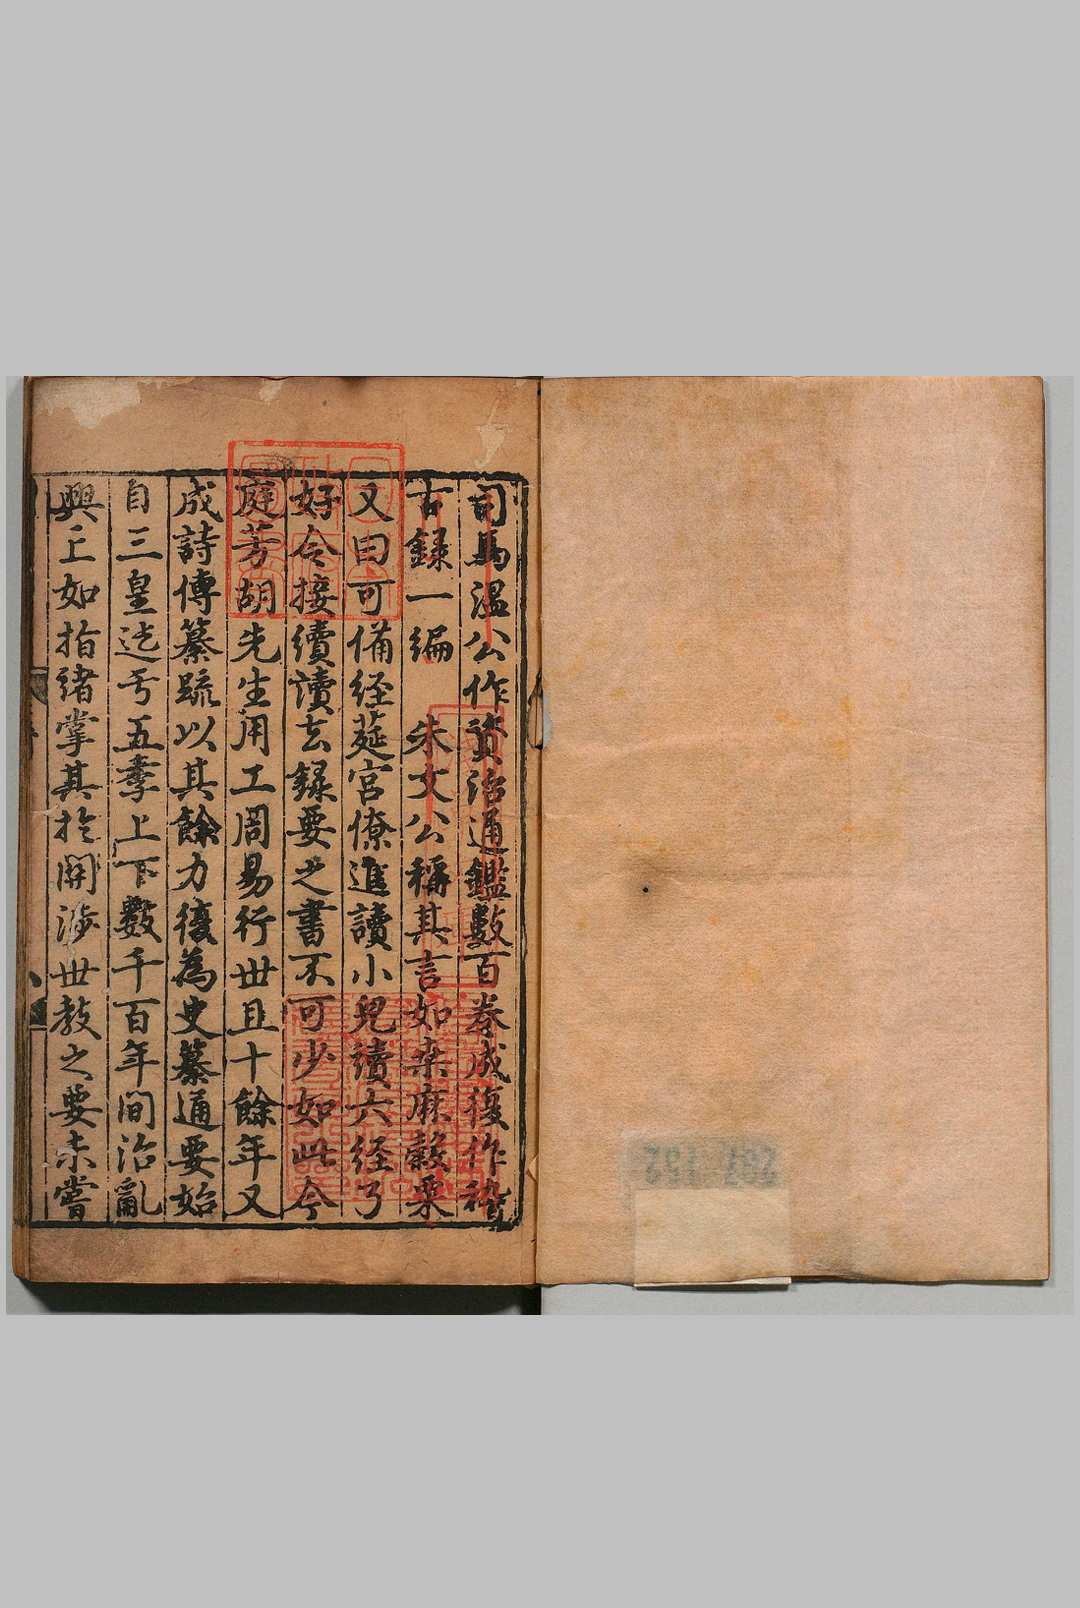 司馬温公作資治通鑑數百巻成復作稽
古録一編　朱文公稱其言如桒麻穀粟
又曰可備経莚官僚進讀小兒讀六経了
好令接續讀去録要之書不可少如此今
庭芳胡先生用工周易行丗且十餘年又
成詩傳纂䟽以其餘力復為史纂通要始
自三皇迄于五季上下數千百年間治亂
興亡如指諸掌其於開渉丗教之要未嘗